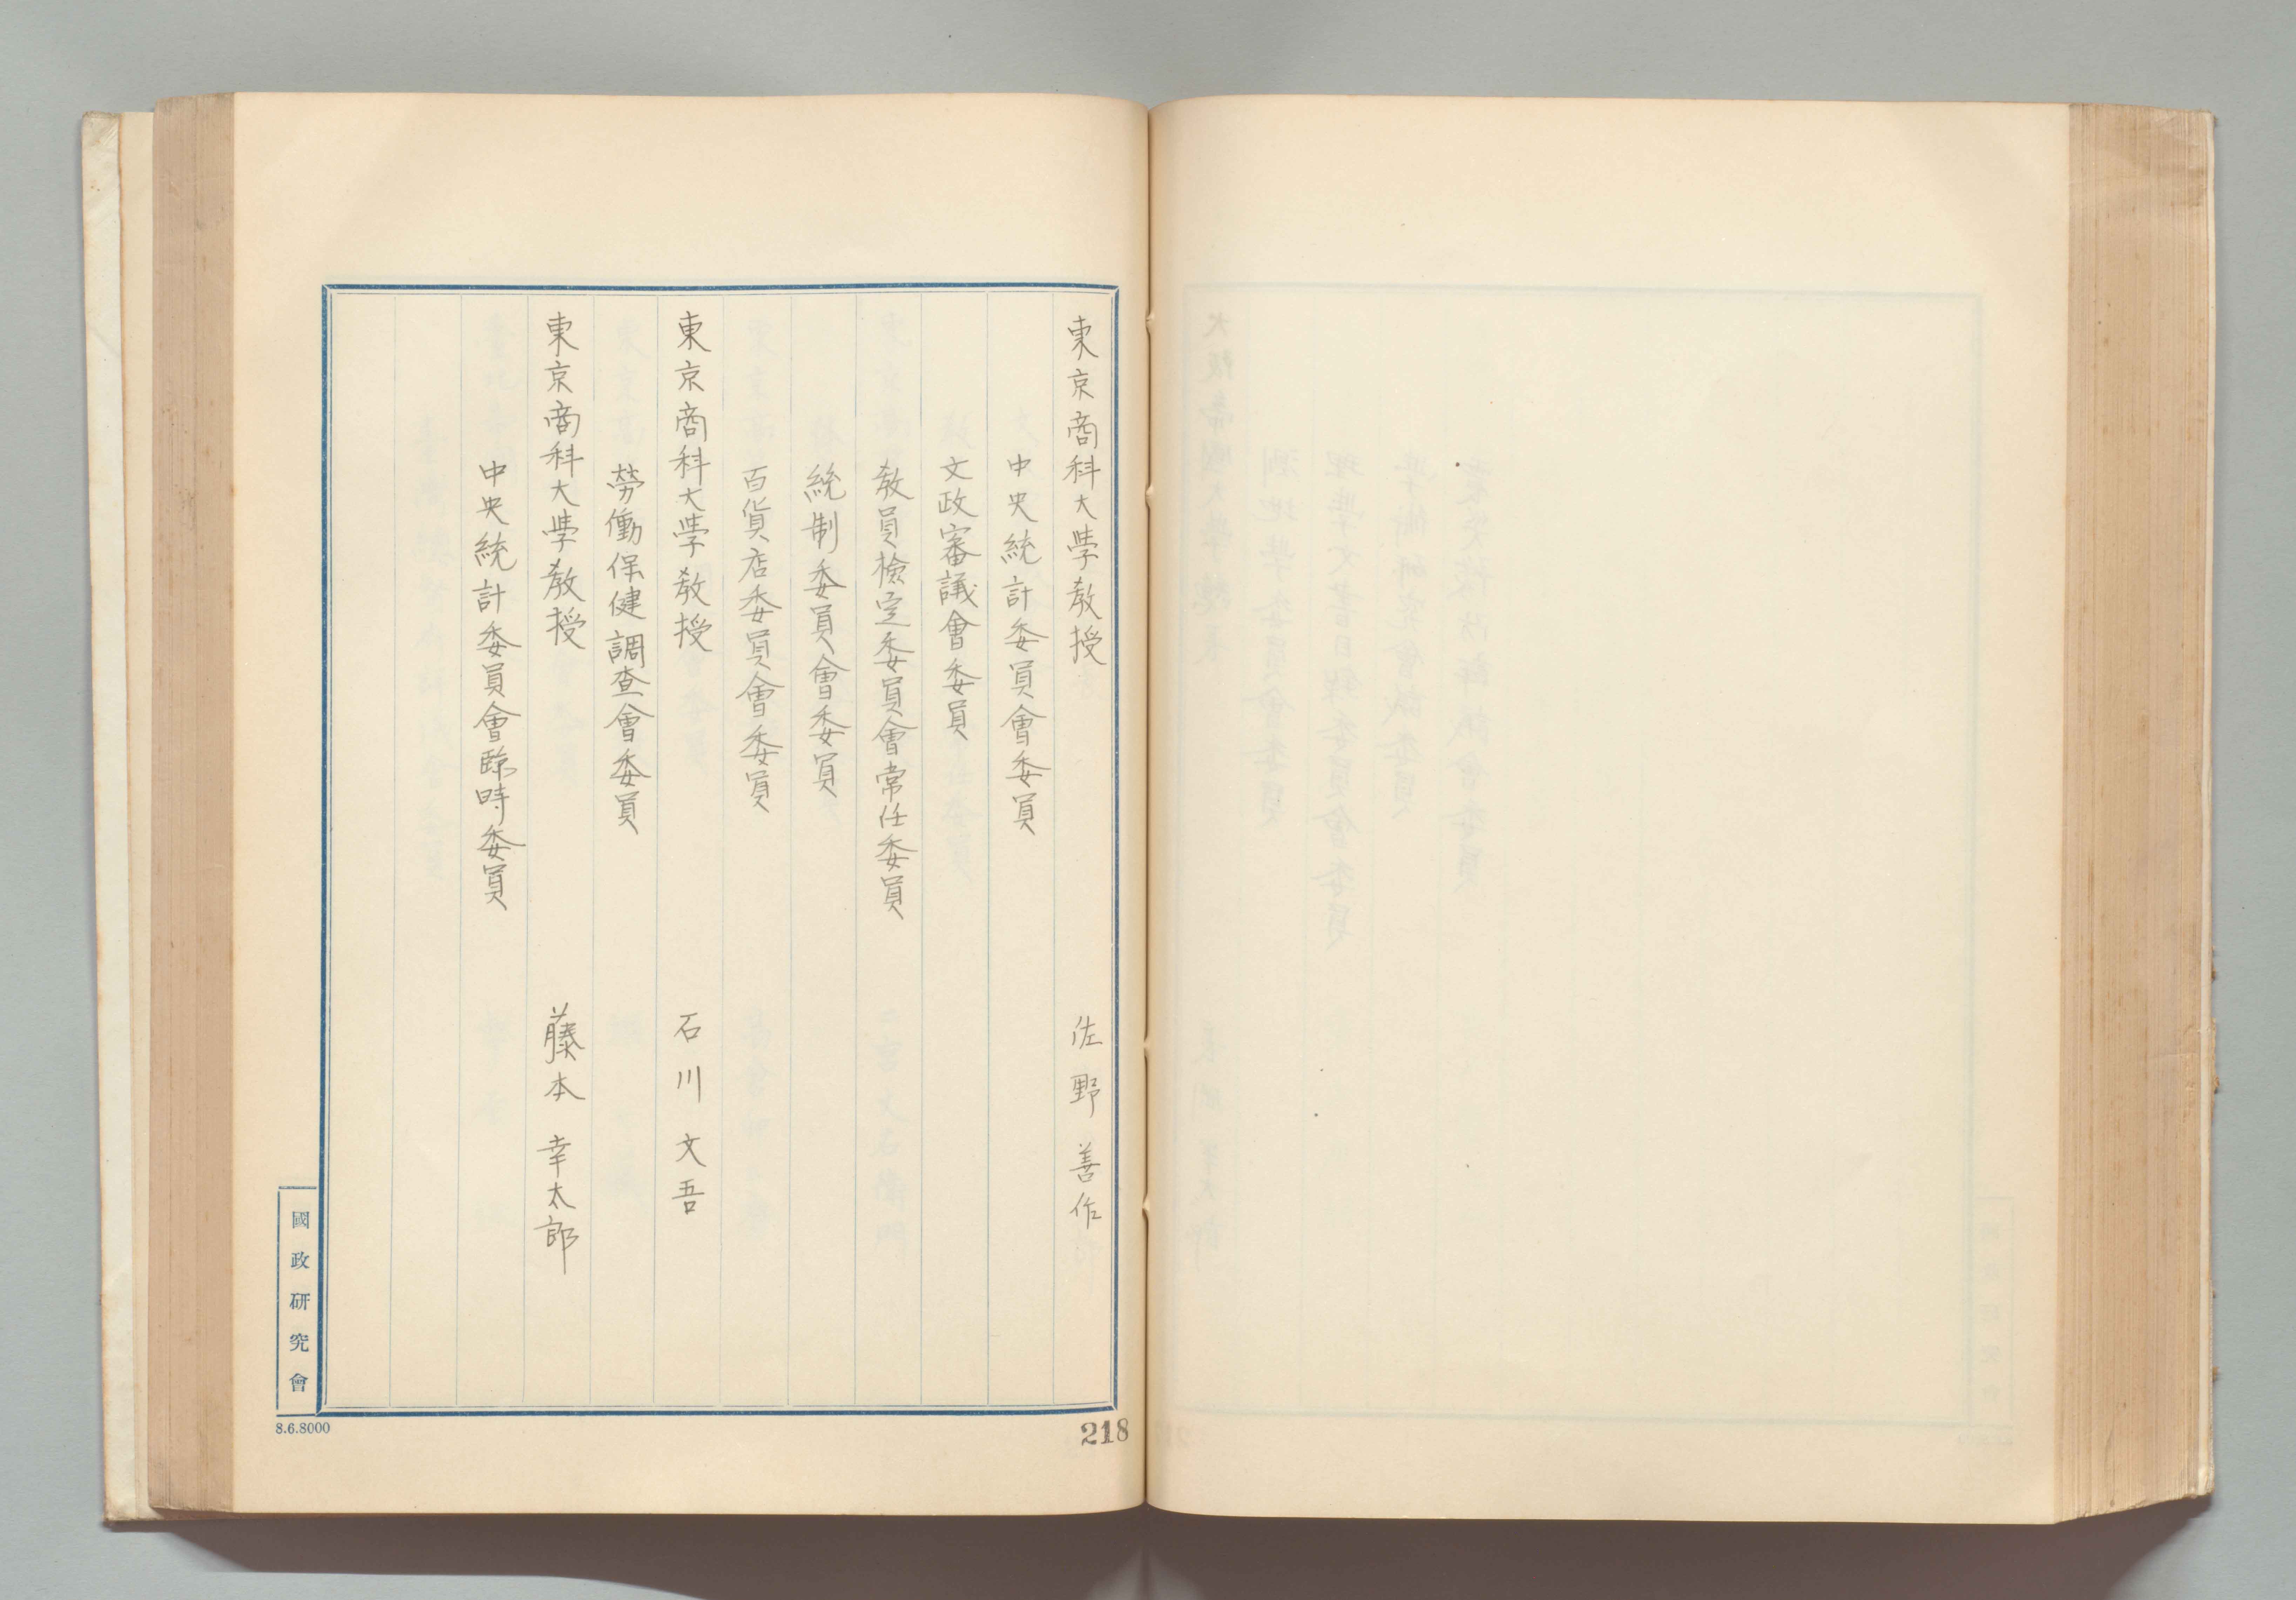 東京商科大學教授 佐野善作
中央統計委員會委員
文政審議會委員
教員檢定委員會常任委員
統制委員會委員
百貨店委員會委員
東京商科大學教授 石川文吾
勞働保健調査會委員
東京商科大學教授 藤本幸太郎
中央統計委員會臨時委員
國政研究會
8.6.8000
218